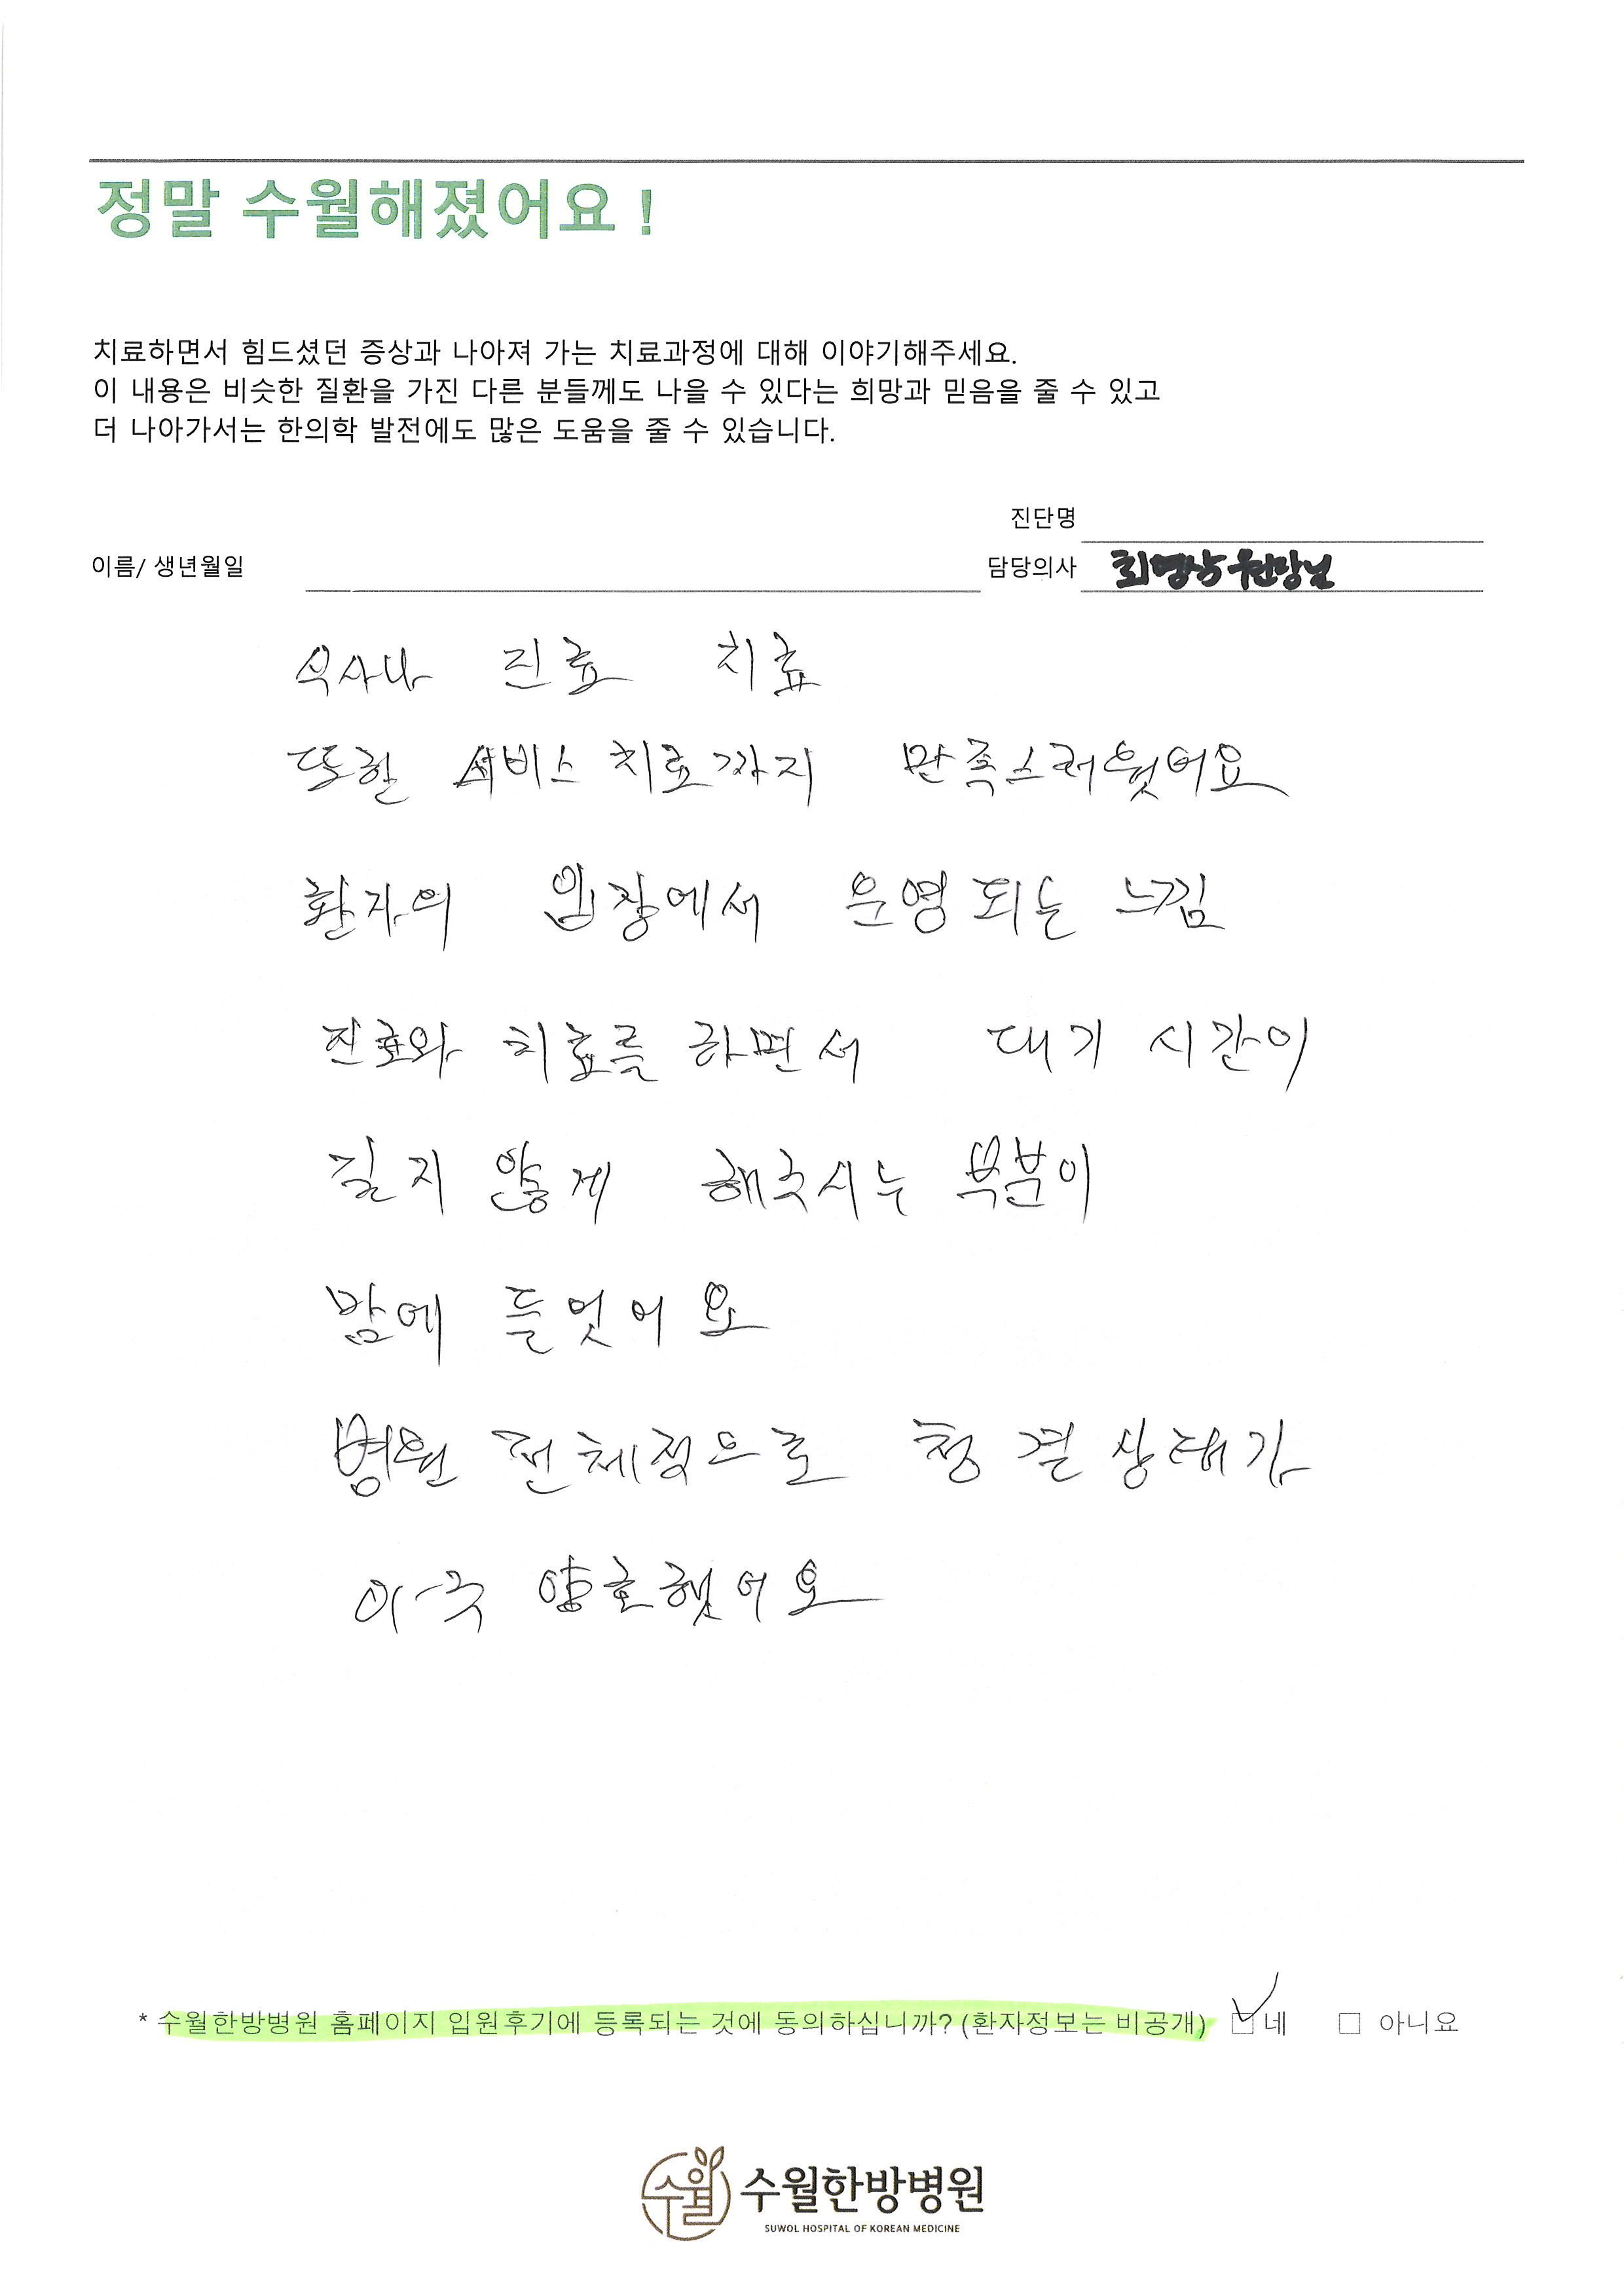 정말 수월해졌어요 !
치료하면서 힘드셨던 증상과 나아져 가는 치료과정에 대해 이야기해주세요.
이 내용은 비슷한 질환을 가진 다른 분들께도 나을 수 있다는 희망과 믿음을 줄 수 있고
더 나아가서는 한의학 발전에도 많은 도움을 줄 수 있습니다.
진단명
이름/ 생년월일 담당의사 최영상 원장님
식사나 진료 치료
또한 서비스 치료까지 만족스러웟어요
환자의 입장에서 운영되는 느낌
진료와 치료를 하면서 대기 시간이
길지 않게 해주시는 부분이
맘에 들엇어요
병원 전체적으로 청결상태가
아주 양호했어요
* 수월한방병원 홈페이지 입원후기에 등록되는 것에 동의하십니까? (환자정보는 비공개) 네 아니요
수월 수월한방병원
SUWOL HOSPITAL OF KOREAN MEDICINE